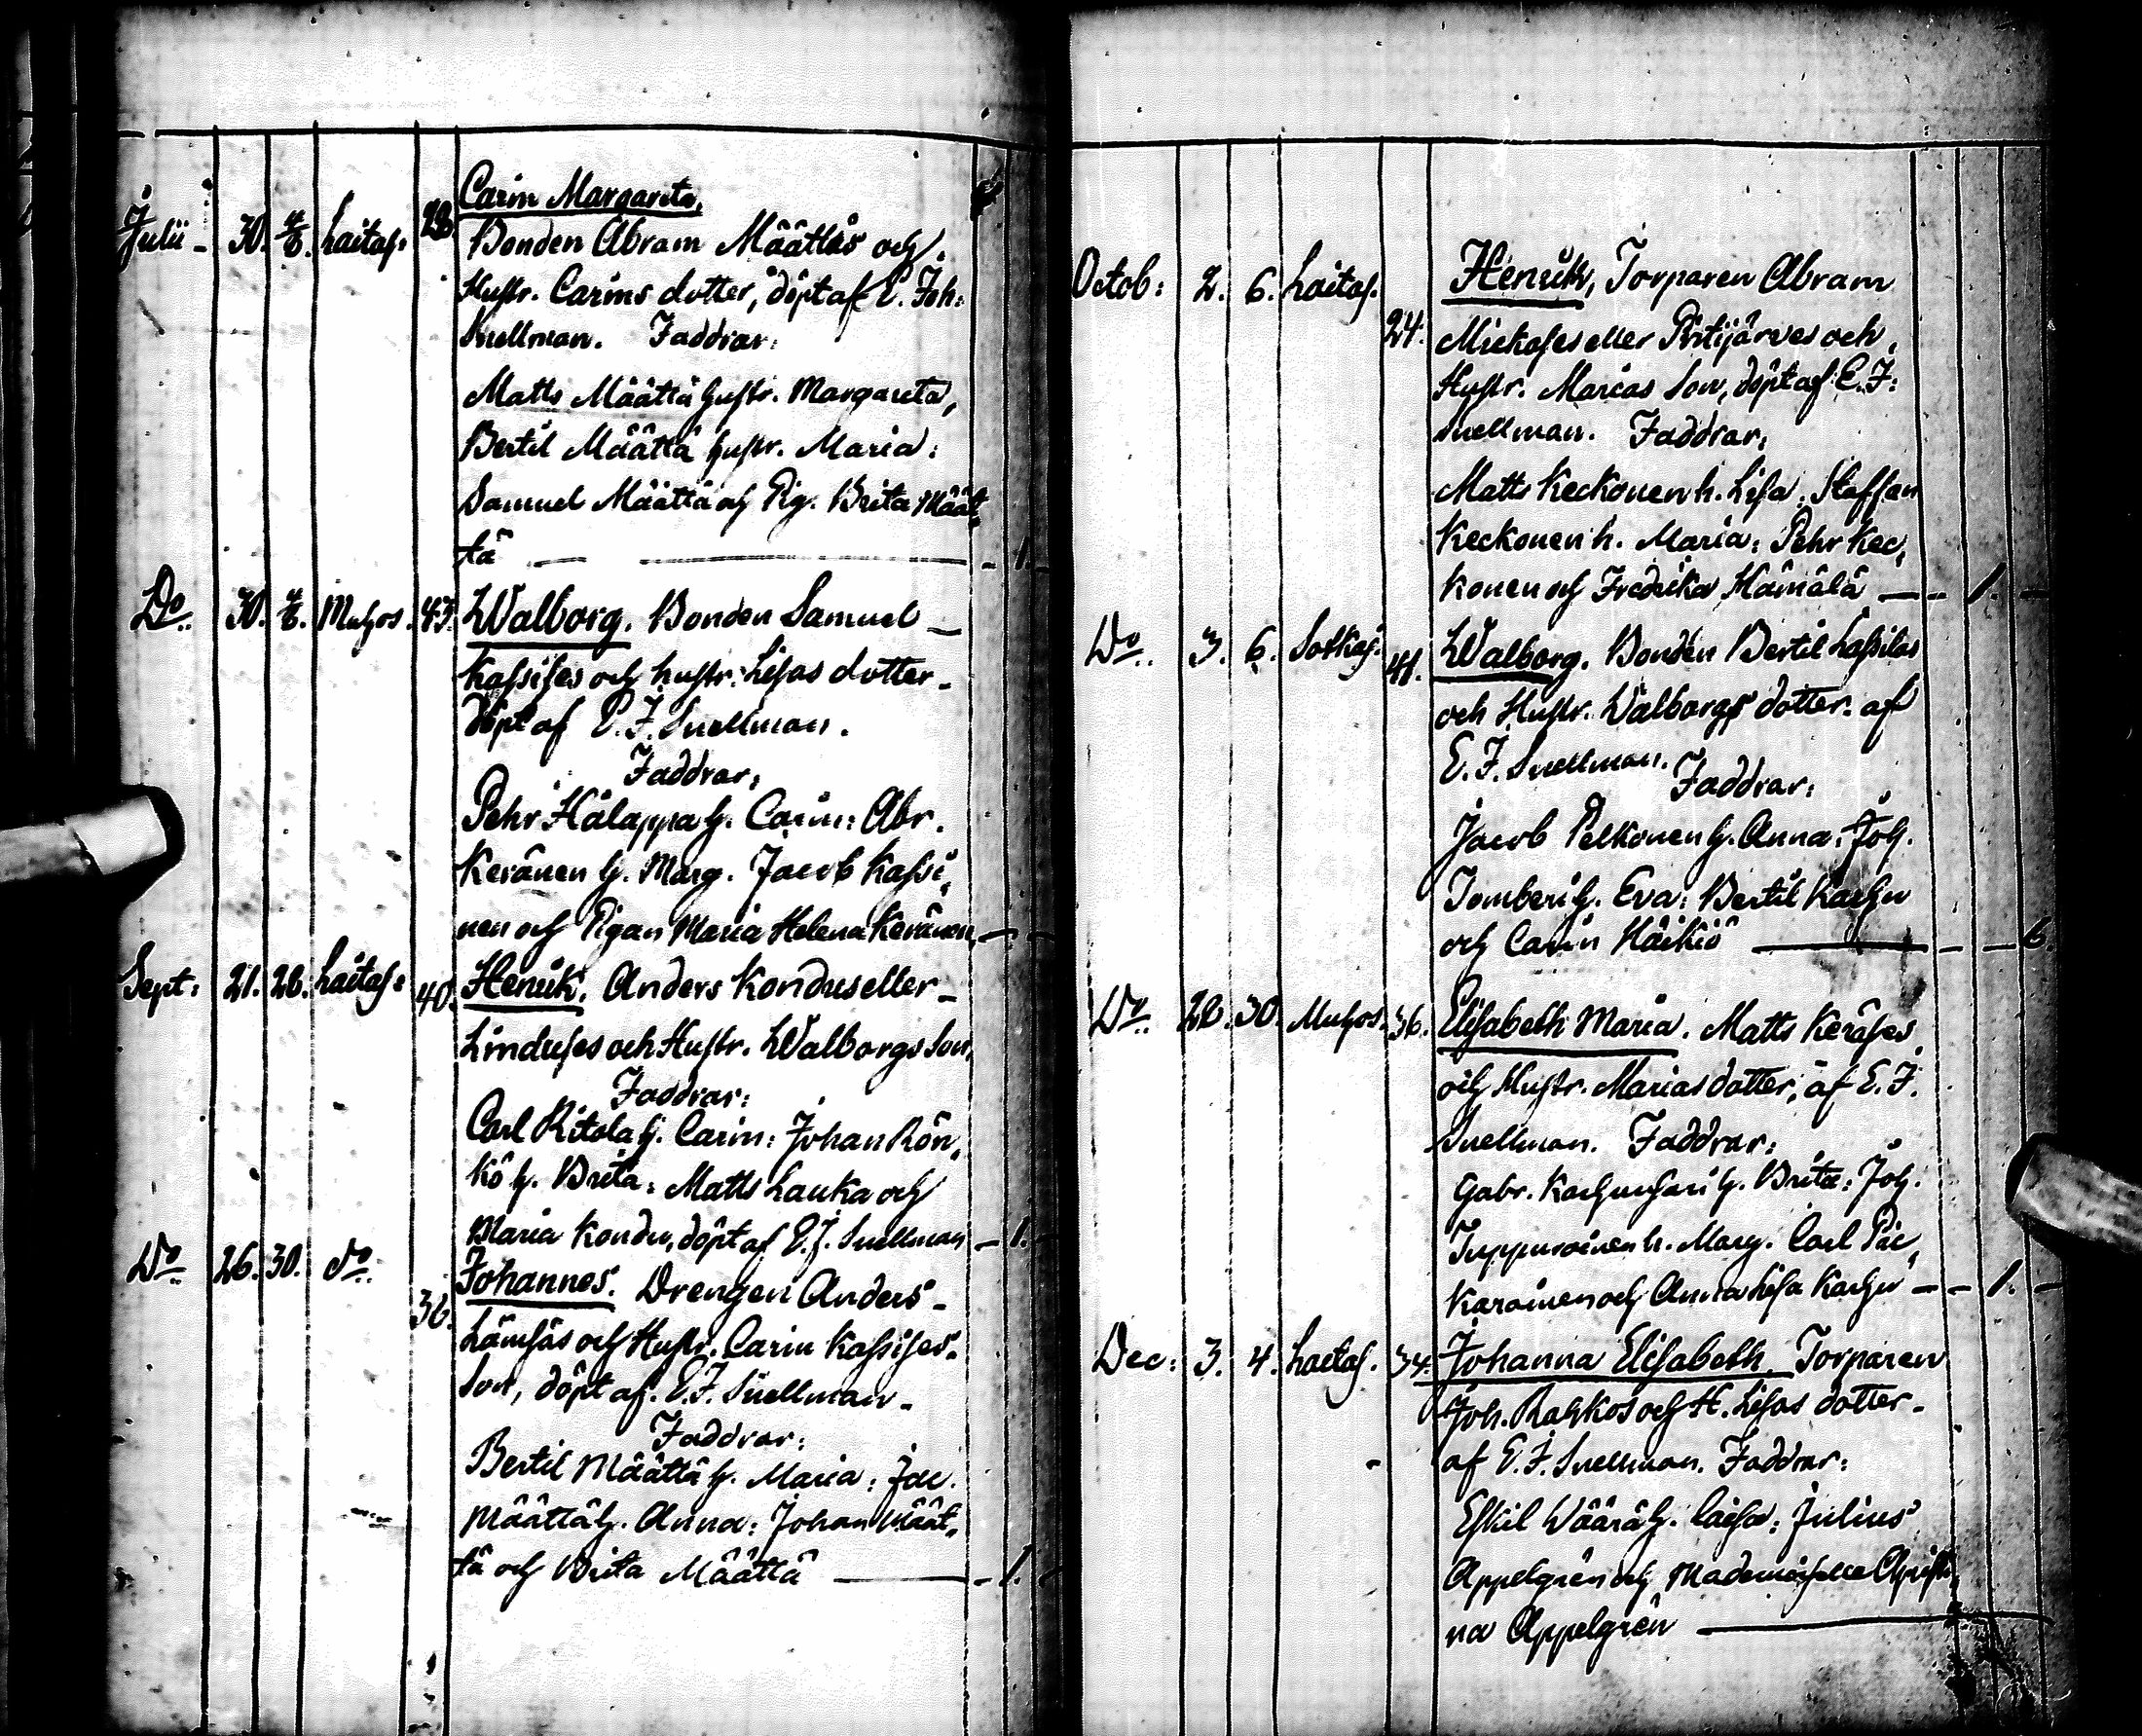 Carin Margareta,
Julii - 30. 4/8. Laitas: 28 Bonden Abram Määttäs och
Hustr. Carins dotter, döpt af E. Joh:
Snellman. Faddrar:
Matts Määttä hustr. Margareta,
Bertil Määttä hustr. Maria:
Samuel Määttä och Pig. Brita Määt,
tä — — 1.
Do. 30. 4/8. Muhos. 43. Walborg. Bonden Samuel —
Kassises och hustr. Lisas dotter -
döpt af E. J. Snellman.
Faddrar,
Pehr Hålappa h. Carin: Abr.
Keränen h. Marg. Jacob Kassi,
nen och Pigan Maria Helena Keränen —
Sept: 21. 28. Laitas: 40. Henrik. Anders Kondus eller -
Linduses och Hustr. Walborgs Son,
Faddrar:
Carl Ritola h. Carin: Johan Rön,
kö h. Brita: Matts Lauka och
Maria Kondu, döpt af E. J. Snellman — 1.
Do. 26. 30. do. 36. Johannes. Drengen Anders -
Lämsäs och Hustr. Carin Kassises -
Son, döpt af. E. J. Snellman -
Faddrar:
Bertil Määttä h. Maria: Jac.
Määttä h. Anna: Johan Määt,
tä och Brita Määttä — 1.
Octob: 2. 6. Laitas. 24. Henrik, Torparen Abram
Mickases eller Pirtijärves och
Hustr. Marias Son, döpt af E. J:
Snellman. Faddrar,
Matts Keckonen h. Lisa. Staffan
Keckonen h. Maria: Pehr Kec,
konen och Fredrika Hämälä — 1. —
Do. 3. 6. Sotkas. 41. Walborg. Bonden Bertil Lassilas
och Hustr. Walborgs dotter. af
E. J. Snellman. Faddrar:
Jacob Pelkonen h. Anna: Joh.
Tomberi h. Eva: Bertil Karhu
och Carin Häikiö — 6.
Do. 28. 30. Muhos. 36. Elisabeth Maria. Matts Keräses
och Hustr. Marias dotter, af E. J.
Snellman. Faddrar:
Gabr. Karhunsari h. Brita: Joh.
Tuppurainen h. Marg. Carl Pic,
karainen och Anna Lisa Karhu — 1. —
Dec: 3. 4. Laitas. 34. Johanna Elisabeth. Torparen
Joh. Rahkos och H. Lisas dotter -
af E. J. Snellman. Faddrar:
Eskil Wäärä h. Caisa: Julius
Appelgrén och Mademoiselle Christi,
na Appelgrén —